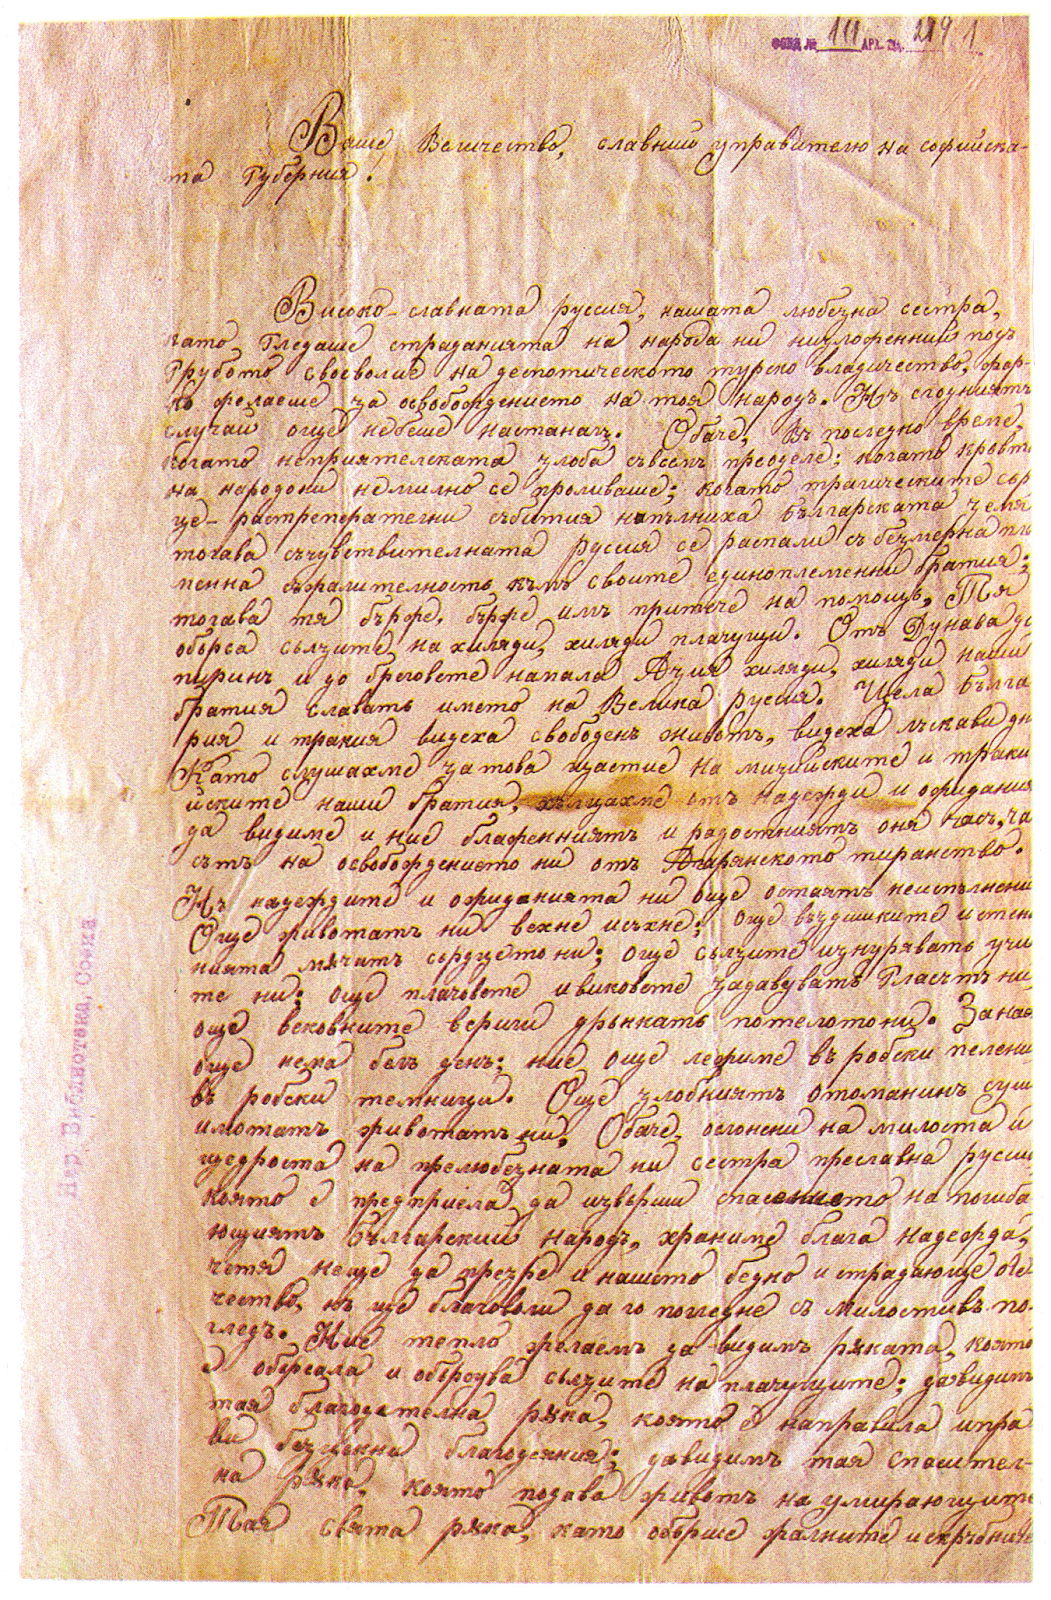 ФОНД № 111 АРХ. ЕД. 219 1
Ваше Величество, славний управителю на софийска-
та Губерния!
Високо-славната руссия, нашата любезна сестра,
като гледаше страданията на народа ни низложенний подъ
грубото своеволие на деспотическото турско владичество, жар-
ко желаеше за освобождението на тоя народъ. Нъ сгодниятъ
случай още небеше настаналъ. Обаче, въ последно време,
когато неприятелската злоба съвсемъ преоделе; когато кровта
на народони немилно се проливаше; когато трагическите сър
це-растреперателни събития напълниха Българската земя
тогава съчувствителната руссия се распали съ безмерна пла
менна съжалителность къмъ своите единоплеменни братия;
тогава тя бърже, бърже имъ притече на помощь, Тя
обърса сълзите на хиляди, хиляди плачущи. Отъ Дунава до
пиринъ и до бреговете напала Азия хиляди, хиляди наши
братия славатъ името на Велика руссия. Цела Бълга
рия и тракия видеха свободенъ животъ, видеха лъскави дни
Като слушахме за това щастие на мизийските и траки
йските наши братия, хълцахме отъ надежди и ожидания
да видиме и ние блаженниятъ и радостниятъ оня часъ, ча
сътъ на освобождението ни отъ Агарянското тиранство.
Нъ надеждите и ожиданията ни още остаятъ неиспълнени
Още животатъ ни вехне исъхне; още въздишките и стен
нията мѫчатъ сърдцето ни; още сълзите изнуряватъ учи
те ни; още плачовете и виковете задавуватъ Гласътъ ни,
още вековните вериги дрънкатъ потелотони. Занас
още нема белъ день; ние още лежиме въ робски пелени
въ робски темници. Още злобниятъ отоманинъ суш
имотатъ животатъ ни, Обаче, ослонени на милоста и
щедроста на прелюбезната ни сестра преславна русси
която е предприела да изверши спасението на погиба
ющиятъ Българский народъ, храниме блага надежда,
четя неще да презре и нашето бедно и страдающе оте
чество, нъ ще благоволи да го погледне съ милостивъ по-
гледъ. Ние тепло желаемъ да видимъ рѫката, която
е обърсала и обърсува сълзите на плачущите; да видимъ
тая благодателна рѫка, която е направила и пра
ви безценни благодеяния; да видимъ тая спасител-
на рѫка, която подава животъ на умирающите
Тая свята рѫка, като обърше жалните искръбниче
Нар. Библиотека, София